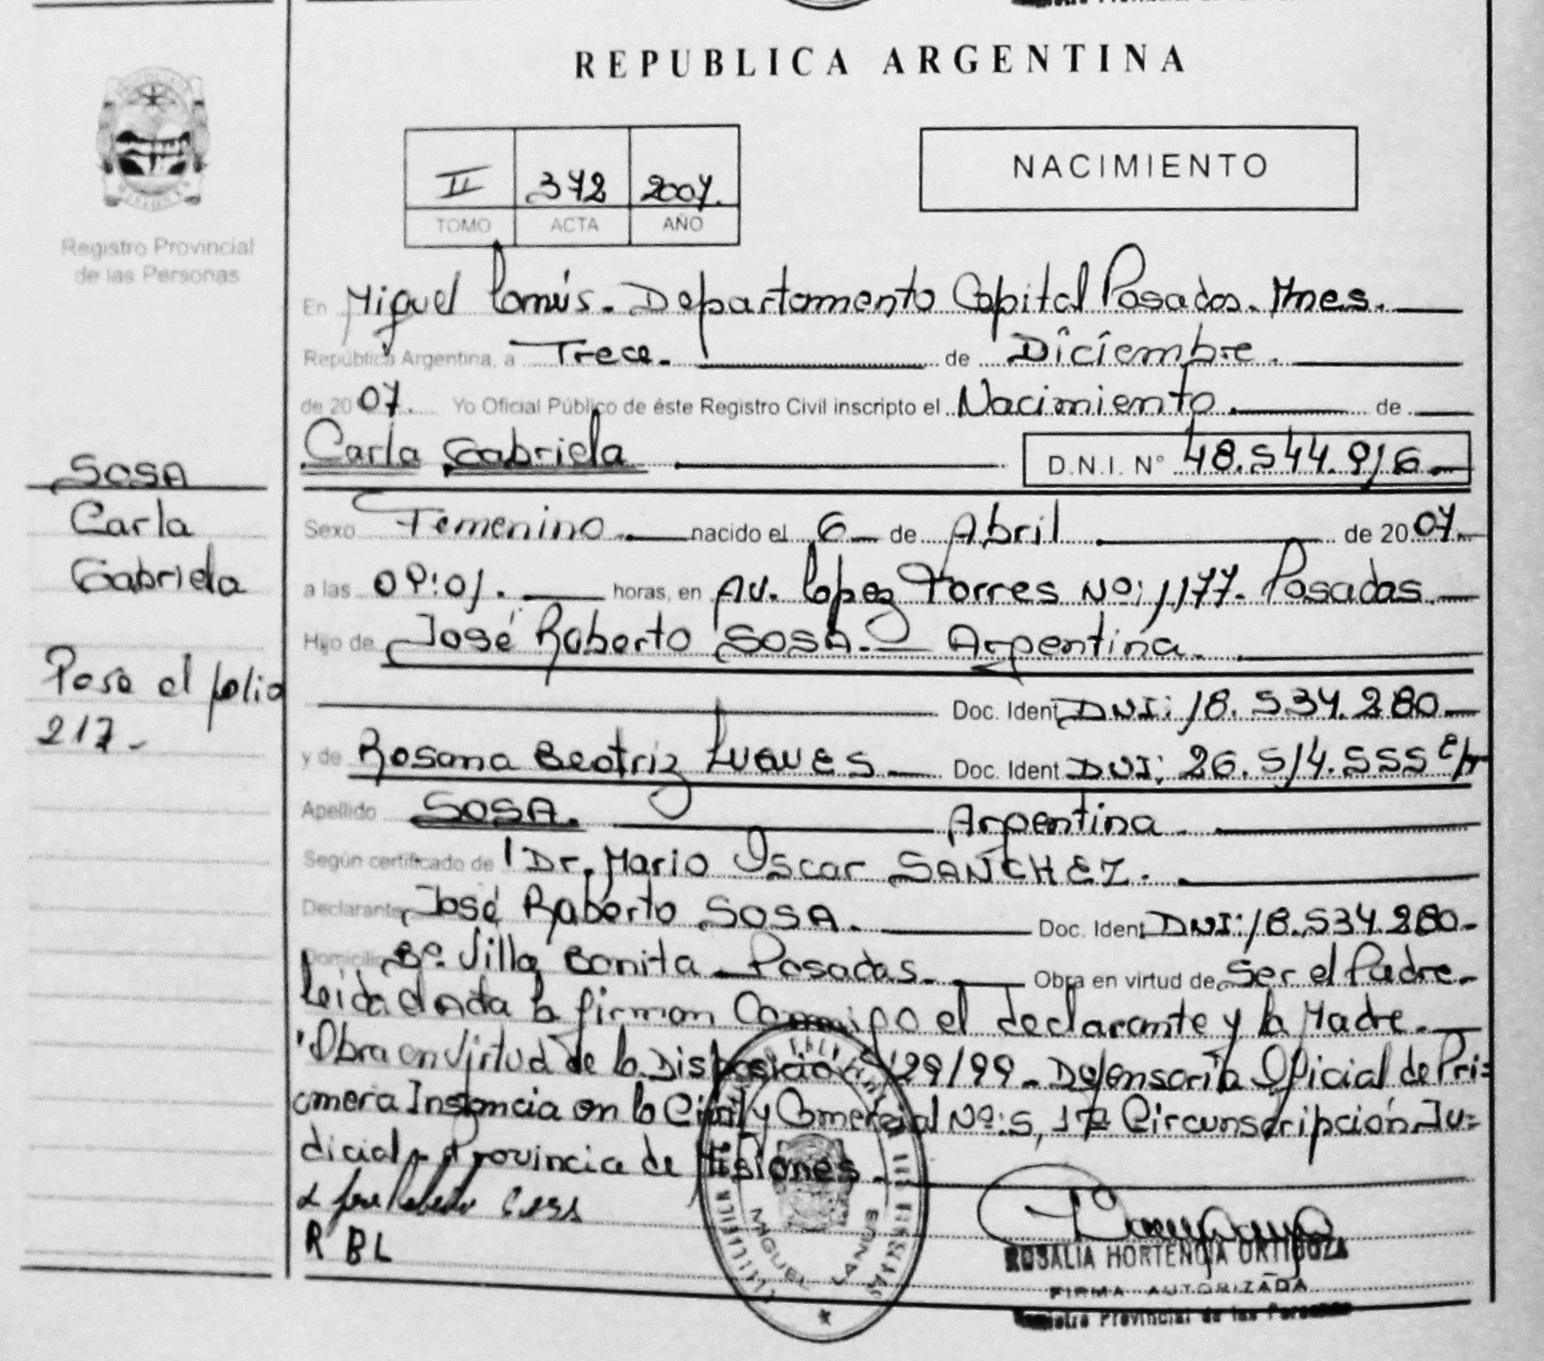 REPUBLICA ARGENTINA
II 372 2007.
TOMO ACTA AÑO
NACIMIENTO
Registro Provincial
de las Personas
En Miguel Lanús. Departamento Capital Posadas. Mnes.
República Argentina, a Trece. de Diciembre.
de 2007. Yo Oficial Público de éste Registro Civil inscripto el Nacimiento. de
Carla Gabriela D.N.I. N° 48.544.916
SOSA
Carla
Gabriela
Pasa al folio
217
Sexo Femenino nacido el 6 de Abril de 2007
a las 09:01. horas, en AV. López Torres Nº: 1177. Posadas.
Hijo de José Roberto SOSA. Argentina.
Doc. Ident DNI: 18.534.280
y de Rosana Beatriz Doc. Ident DNI: 26.514.555
Apellido SOSA. Argentina.
Según certificado de Dr. Mario Oscar SANCHEZ.
Declarante José Roberto SOSA. Doc. Ident DNI: 18.534.280
Domicilio Bº. Villa Bonita Posadas. Obra en virtud de Ser el Padre.
Leida el Acta la firman Conmigo el declarante y la Madre.
"Obra en Virtud de la Disposición 29/99 Defensoría Oficial de Pri=
mera Instancia en lo Civil y Comercial Nº: 5, 1ª Circunscripción Ju=
dicial Provincia de Misiones.
R B L
MIGUEL LANUS
ROSALIA HORTENCIA ORTIGOZA
FIRMA AUTORIZADA
Registro Provincial de las Personas